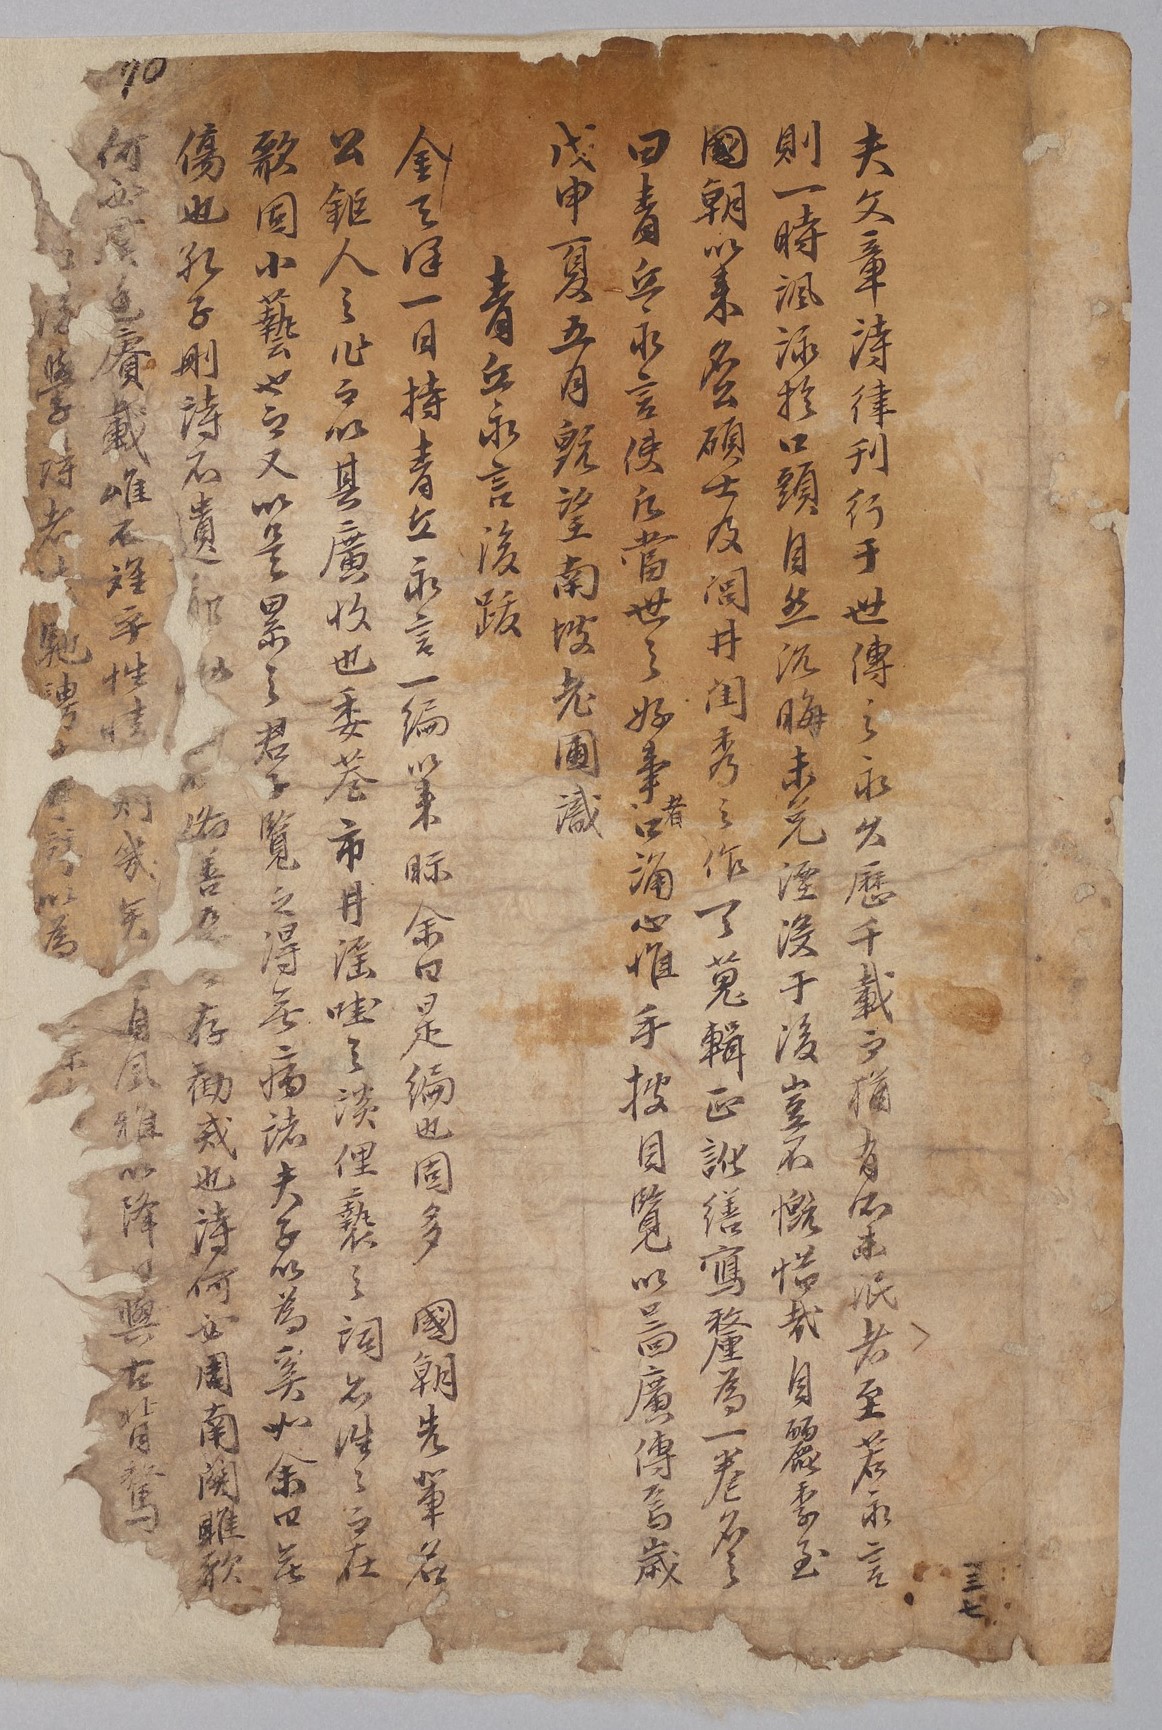 夫文章詩律刊行于世傳之永久歷千載而猶有所未泯者至若永言
則一時諷詠於口頭自然沉晦未免湮沒于後豈不慨惜哉自麗季至
國朝以來名公碩士及閭井閨秀之作一一蒐輯正訛繕寫釐為一卷名之
曰青丘永言使凡當世之好事者口誦心惟手披目覽以啚廣傳焉歲
戊申夏五月旣望南坡老圃識
青丘永言後跋
金天澤一日持青丘永言一編以來眎余曰是編也固多 國朝先輩名
公鉅人之作而以其廣收也委巷市井淫哇之談俚褻之詞亦往往而在
歌固小藝也而又以是累之君子覽之得無病諸夫子以為奚如余曰無
傷也孔子刪詩不遺鄭衛 備善惡 存勸戒也詩何必周南關雎歌
何必虞廷賡載惟不離乎性情則幾矣 自風雅以降日與古背騖
學詩者 馳騁 以為
三七
70